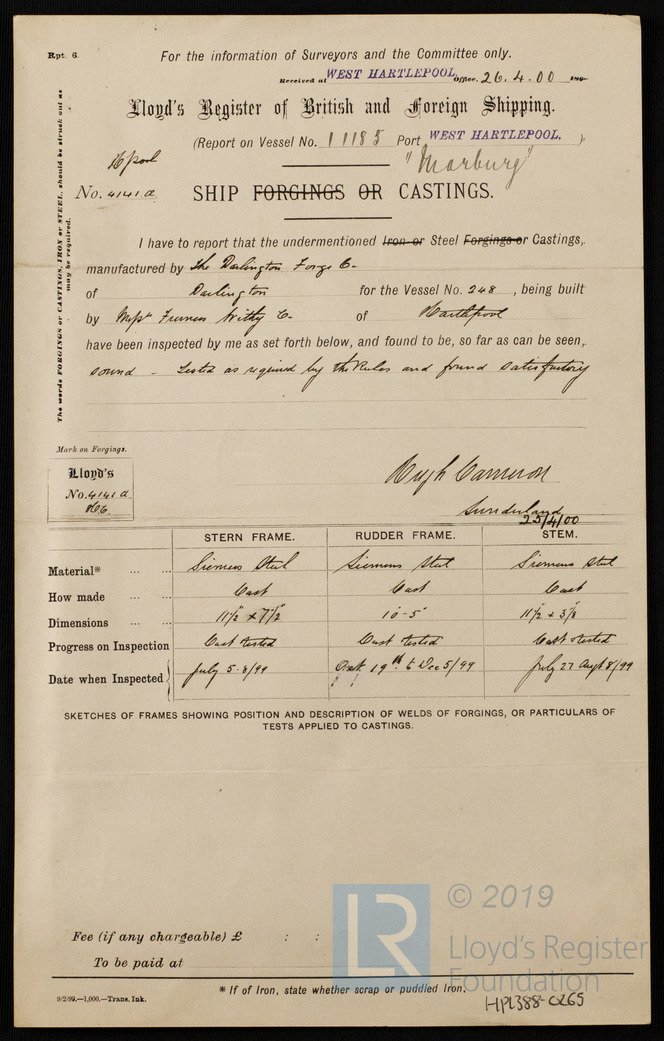 Rpt. 6.
For the information of Surveyors and the Committee only.
Received at WEST HARTLEPOOL Office, 26.4.00 189
Lloyd's Register of British and Foreign Shipping.
(Report on Vessel No. 11185 Port WEST HARTLEPOOL. )
"Marburg"
H'pool
No. 4141a
SHIP FORGINGS OR CASTINGS.
The words FORGINGS or CASTINGS, IRON or STEEL, should be struck out as
may be required.
I have to report that the undermentioned Iron or Steel Forgings or Castings,
manufactured by The Darlington Forge Co.
of Darlington for the Vessel No. 248, being built
by Messrs Furness Withy Co. of Hartlepool
have been inspected by me as set forth below, and found to be, so far as can be seen,
sound - Tested as required by the Rules and found satisfactory
Mark on Forgings.
Lloyd's
No. 4141a
HC
Hugh Cameron
Sunderland
25/4/00
STERN FRAME. RUDDER FRAME. STEM.
Material* Siemens Steel Siemens Steel Siemens Steel
How made Cast Cast Cast
Dimensions 11½ x 7½" 10-5" 11½ x 3⅛
Progress on Inspection Cast tested Cast tested Cast tested
Date when Inspected July 5-8/99 Oct 19th to Dec 5/99 July 27 Augt 8/99
SKETCHES OF FRAMES SHOWING POSITION AND DESCRIPTION OF WELDS OF FORGINGS, OR PARTICULARS OF
TESTS APPLIED TO CASTINGS.
Fee (if any chargeable) £ : :
To be paid at
* If of Iron, state whether scrap or puddled Iron.
9/2/99.—1,000.—Trans. Ink.
LR
© 2019
Lloyd's Register
Foundation
HPL388-0265